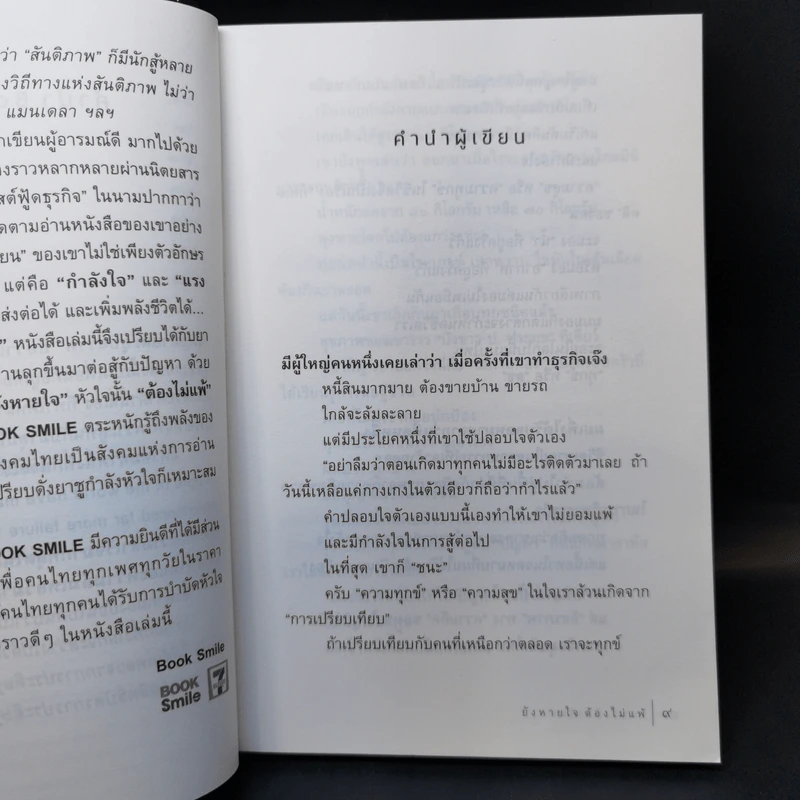 ว่า "สันติภาพ" ก็มีนักสู้หลาย
งวิถีทางแห่งสันติภาพ ไม่ว่า
แมนเดลา ฯลฯ
เขียนผู้อารมณ์ดี มากไปด้วย
งราวหลากหลายผ่านนิตยสาร
สต์ฟู้ดธุรกิจ" ในนามปากกาว่า
ดตามอ่านหนังสือของเขาอย่าง
ยน" ของเขาไม่ใช่เพียงตัวอักษร
แต่คือ "กำลังใจ" และ "แรง
ส่งต่อได้ และเพิ่มพลังชีวิตได้...
" หนังสือเล่มนี้จึงเปรียบได้กับยา
านลุกขึ้นมาต่อสู้กับปัญหา ด้วย
ังหายใจ" หัวใจนั้น "ต้องไม่แพ้"
OOK SMILE ตระหนักรู้ถึงพลังของ
ังคมไทยเป็นสังคมแห่งการอ่าน
ปรียบดั่งยาชูกำลังหัวใจก็เหมาะสม
OOK SMILE มีความยินดีที่ได้มีส่วน
พื่อคนไทยทุกเพศทุกวัยในราคา
คนไทยทุกคนได้รับการบำบัดหัวใจ
ราวดีๆ ในหนังสือเล่มนี้
Book Smile
BOOK
Smile
7
คำนำผู้เขียน
มีผู้ใหญ่คนหนึ่งเคยเล่าว่า เมื่อครั้งที่เขาทำธุรกิจเจ๊ง
หนี้สินมากมาย ต้องขายบ้าน ขายรถ
ใกล้จะล้มละลาย
แต่มีประโยคหนึ่งที่เขาใช้ปลอบใจตัวเอง
"อย่าลืมว่าตอนเกิดมาทุกคนไม่มีอะไรติดตัวมาเลย ถ้า
วันนี้เหลือแค่กางเกงในตัวเดียวก็ถือว่ากำไรแล้ว"
คำปลอบใจตัวเองแบบนี้เองทำให้เขาไม่ยอมแพ้
และมีกำลังใจในการสู้ต่อไป
ในที่สุด เขาก็ "ชนะ"
ครับ "ความทุกข์" หรือ "ความสุข" ในใจเราล้วนเกิดจาก
"การเปรียบเทียบ"
ถ้าเปรียบเทียบกับคนที่เหนือกว่าตลอด เราจะทุกข์
ยังหายใจ ต้องไม่แพ้ | ๙